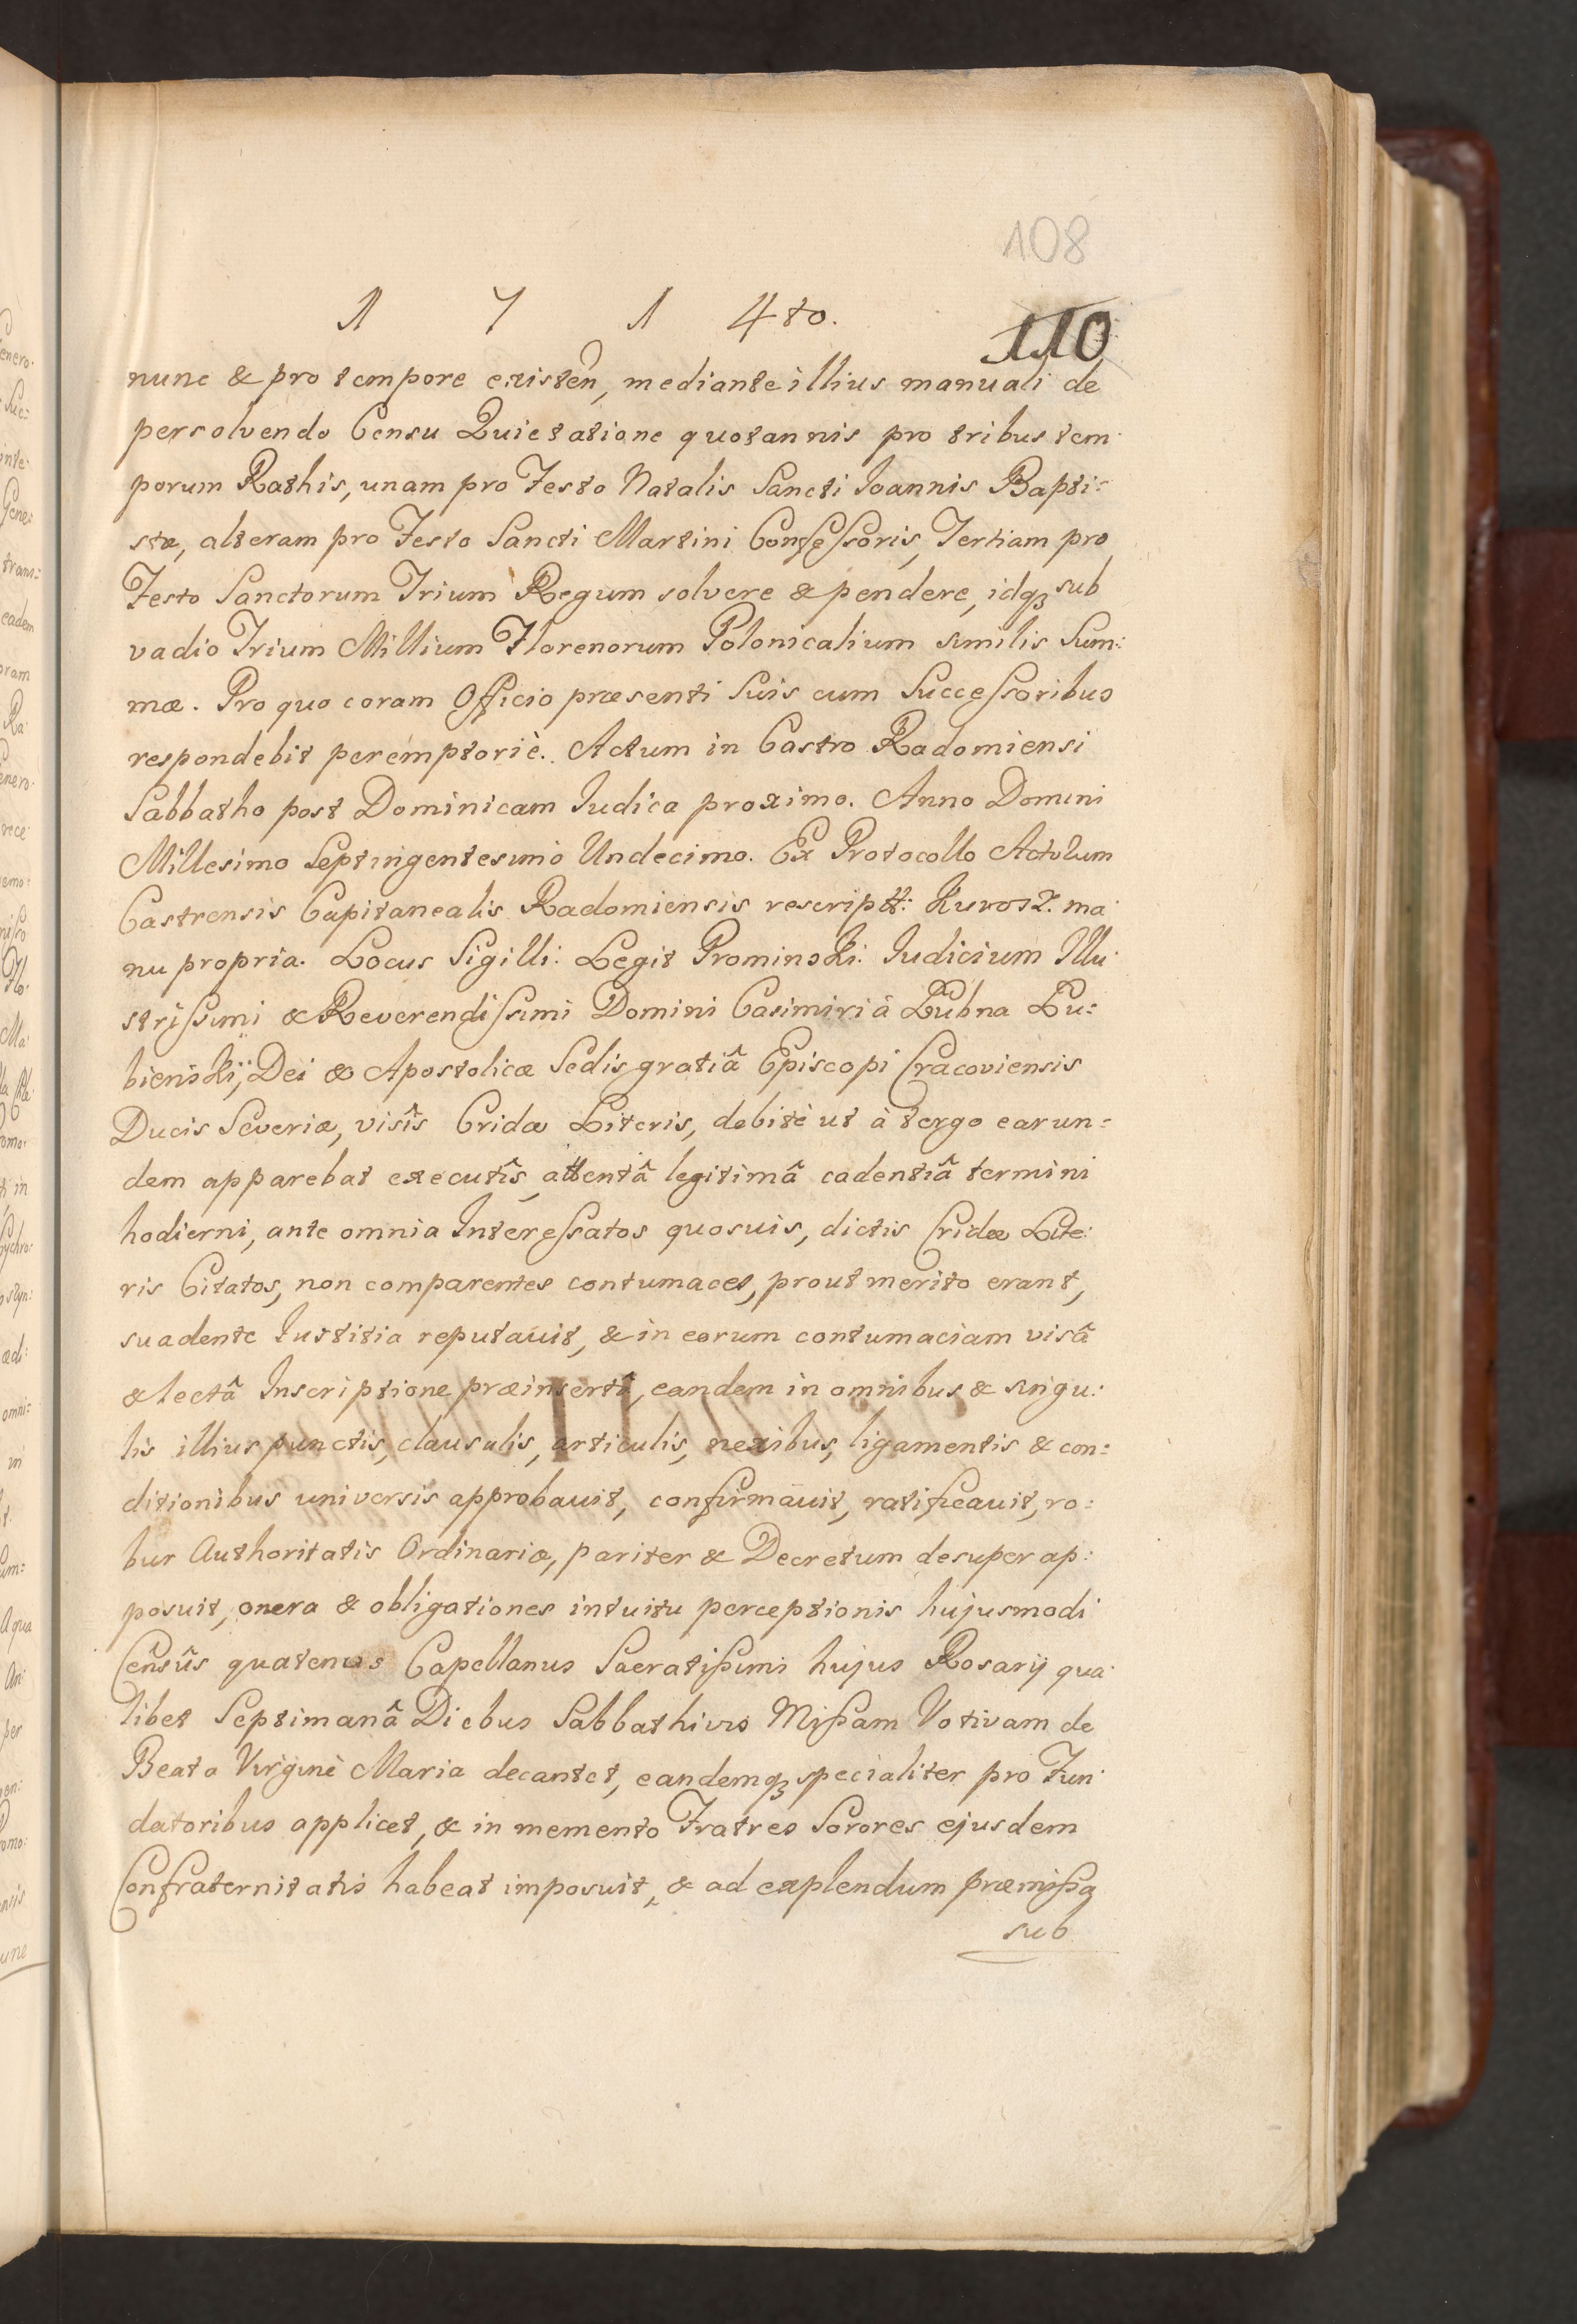 108
1 7 1 4to.
110
nunc & pro tempore existen, mediante illius manuali de
persolvendo Censu Quietatione quotannis pro tribus tem:
porum Rathis, unam pro Festo Natalis Sancti Joannis Bapti:
stæ, alteram pro Festo Sancti Martini Confeſsoris, Tertiam pro
Festo Sanctorum Trium Regum solvere & pendere, idqꝫ sub
vadio Trium Millium Florenorum Polonicalium similis Sum:
mæ. Pro quo coram Officio præsenti Suis cum Succeſsoribus
respondebit peremptoriè. Actum in Castro Radomiensi
Sabbatho post Dominicam Judica proximo. Anno Domini
Millesimo Septingentesimo Undecimo. Ex Protocollo Actuum
Castrensis Capitanealis Radomiensis rescriptt: Kurosz. ma:
nu propria. Locus Sigilli: Legit Prominski. Judicium Illu:
striſsimi & Reverendiſsimi Domini Casimiri â Łubna Łu:
bieński, Dei & Apostolicæ Sedis gratiâ Episcopi Cracoviensis
Ducis Severiæ, visîs Cridæ Literis, debitè ut à tergo earun:
dem apparebat executîs, attentâ legitimâ cadentiâ termini
hodierni, ante omnia Intereſsatos quosvis, dictis Cridæ Lite:
ris Citatos, non comparentes contumaces, prout merito erant,
suadente Justitia reputavit, & in eorum contumaciam visâ
& lectâ Inscriptione præinsertâ, eandem in omnibus & singu:
lis illius punctis, clausulis, articulis, nexibus, ligamentis & con:
ditionibus universis approbavit, confirmavit, ratificavit, ro:
bur Authoritatis Ordinariæ, pariter & Decretum desuper ap:
posuit, onera & obligationes intuitu perceptionis hujusmodi
Censûs quatenus Capellanus Sacratißimi hujus Rosarij qua:
libet Septimanâ Diebus Sabbathivis Mißam Votivam de
Beata Virgine Maria decantet, eandemqꝫ specialiter pro Fun:
datoribus applicet, & in memento Fratres Sorores ejusdem
Confraternitatis habeat imposuit, & ad explendum præmißa
sub